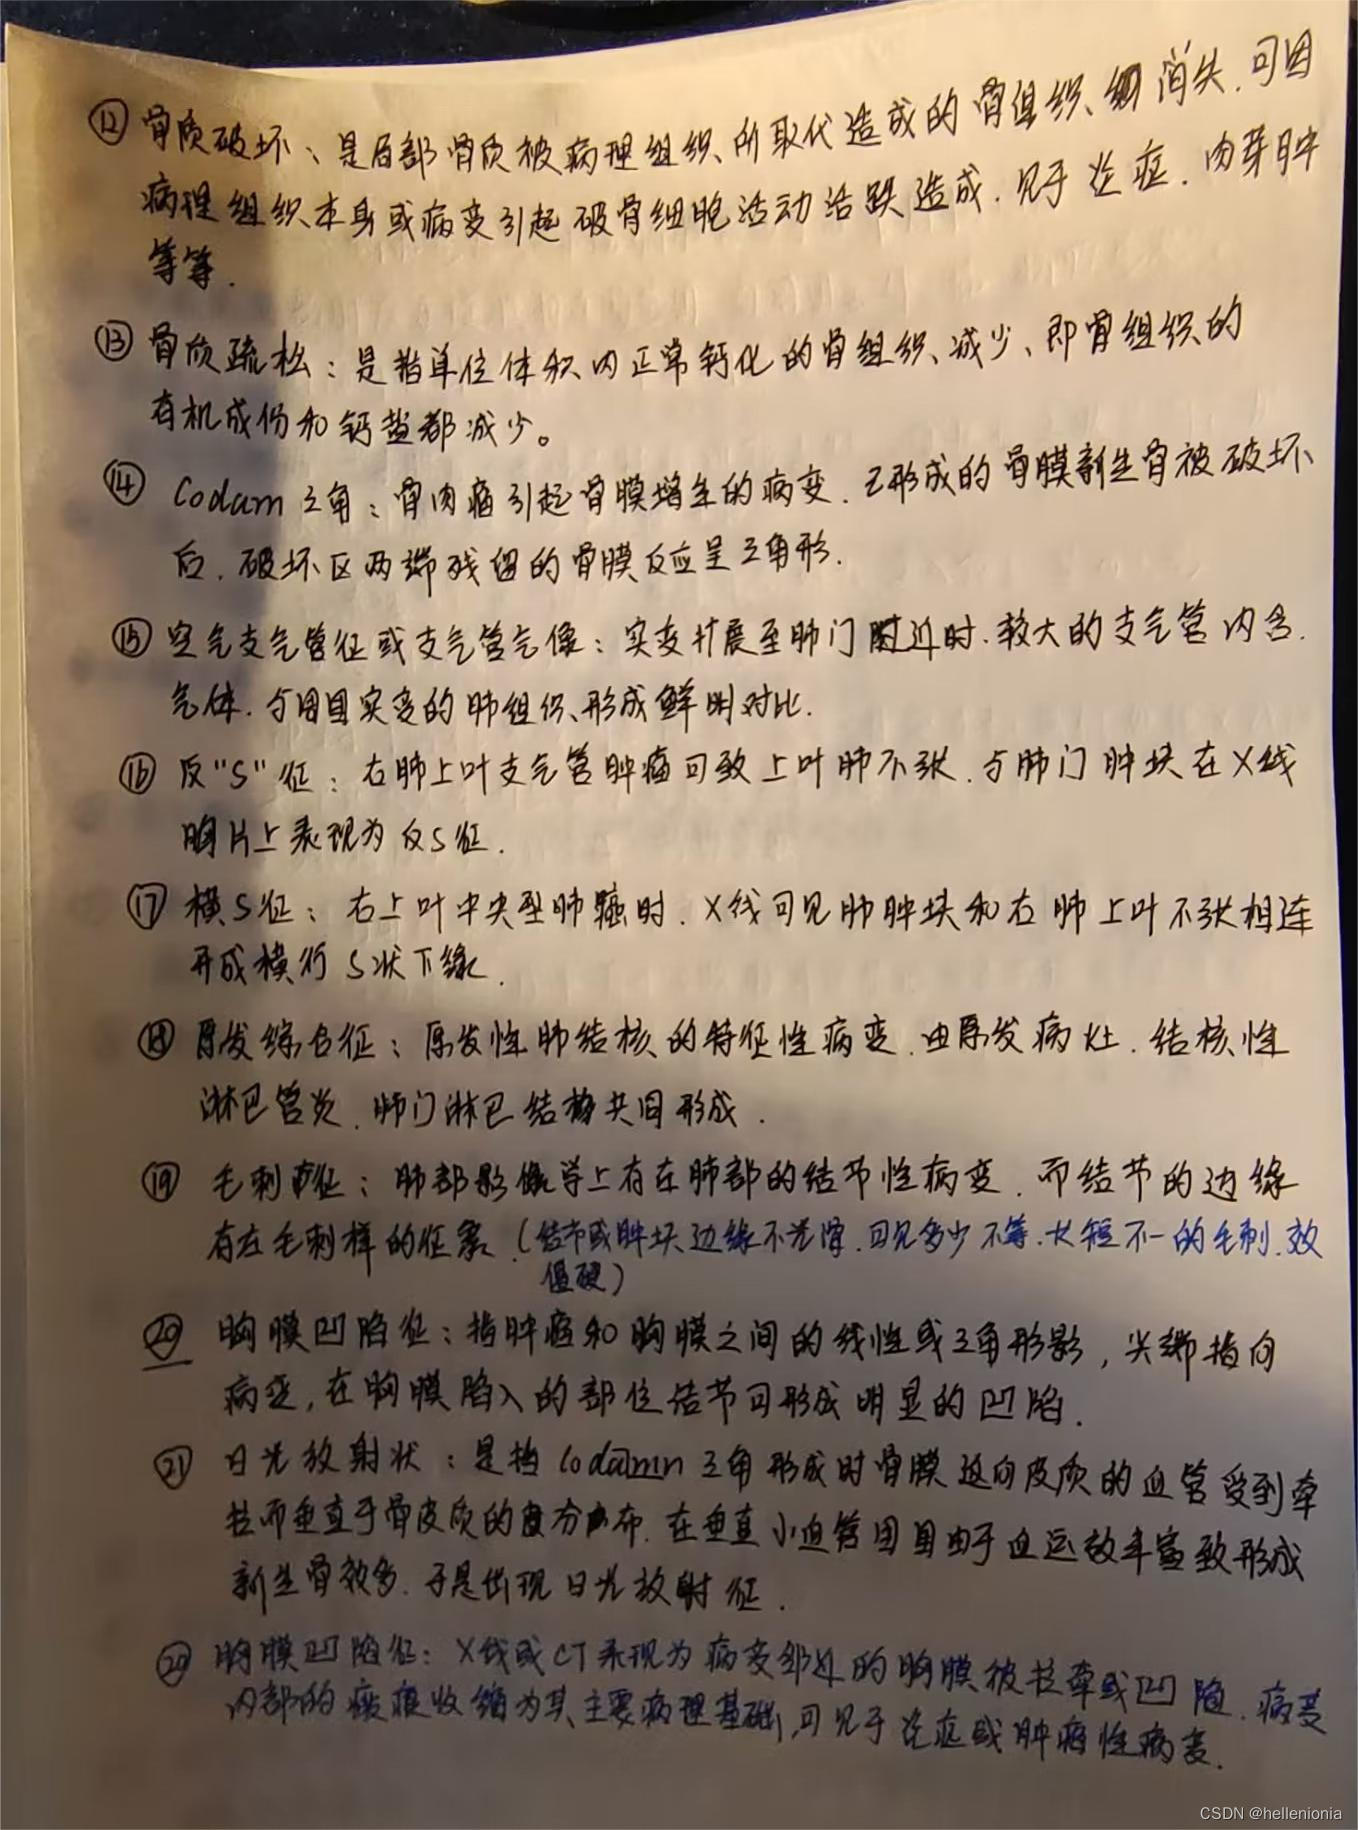 ⑫ 骨质破坏、是局部骨质被病理组织所取代造成的骨组织消失.可因
病理组织本身或病变引起破骨细胞活动活跃造成.见于炎症.肉芽肿
等等.
⑬ 骨质疏松:是指单位体积内正常钙化的骨组织减少、即骨组织的
有机成份和钙盐都减少。
⑭ Codam 三角:骨肉瘤引起骨膜增生的病变.已形成的骨膜新生骨被破坏
后.破坏区两端残留的骨膜反应呈三角形.
⑮ 空气支气管征或支气管气像:实变扩展至肺门附近时.较大的支气管内含.
气体.与周围实变的肺组织形成鲜明对比.
⑯ 反"S"征:右肺上叶支气管肿瘤可致上叶肺不张.与肺门肿块在X线
胸片上表现为反S征.
⑰ 横S征:右上叶中央型肺癌时.X线可见肺肿块和右肺上叶不张相连
形成横行S状下缘.
⑱ 原发综合征:原发性肺结核的特征性病变.由原发病灶.结核性
淋巴管炎.肺门淋巴结核共同形成.
⑲ 毛刺征:肺部影像学上存在肺部的结节性病变.而结节的边缘
存在毛刺样的征象(结节或肿块边缘不光滑.可见多少不等.长短不一的毛刺.较
僵硬)
⑳ 胸膜凹陷征:指肿瘤和胸膜之间的线性或三角形影,尖端指向
病变,在胸膜陷入的部位结节可形成明显的凹陷.
㉑ 日光放射状:是指Codamn三角形成时骨膜返向皮质的血管受到牵
拉而垂直于骨皮质的分布.在垂直小血管周围由于血运较丰富致形成
新生骨较多.于是出现日光放射征.
⑳ 胸膜凹陷征:X线或CT表现为病变邻近的胸膜被拉牵或凹陷.病变
内部的瘢痕收缩为其主要病理基础,可见于炎症或肿瘤性病变.
CSDN @hellenionia